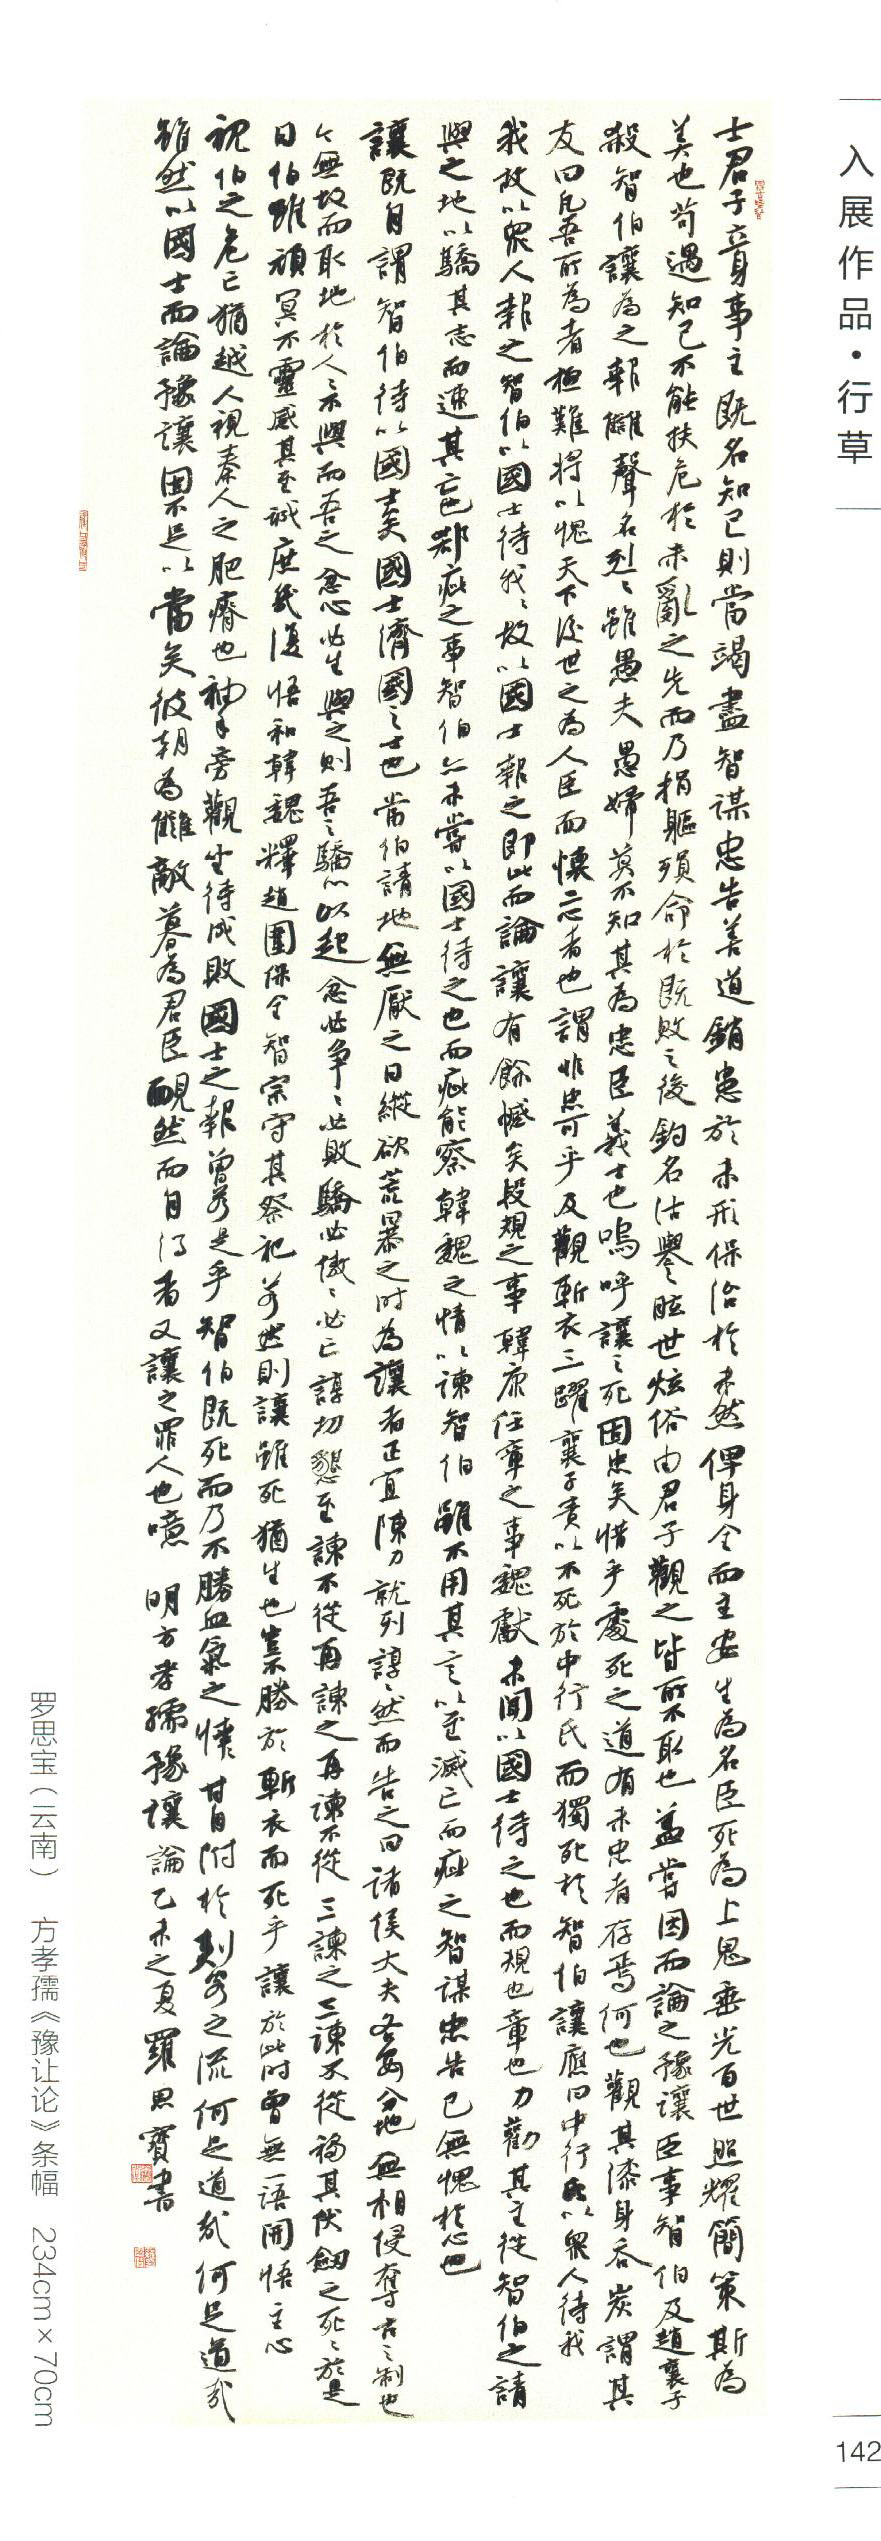 入展作品·行草
士君子立身事主既名知己則當竭盡智謀忠告善道銷患於未形保治於未然俾身全而主安生為名臣死為上鬼垂光百世照耀簡策斯為
美也苟遇知己不能扶危於未亂之先而乃捐軀殞命於既敗之後釣名沽譽眩世炫俗由君子觀之皆所不取也蓋嘗因而論之豫讓臣事智伯及趙襄子
殺智伯讓為之報讎聲名烈々雖愚夫愚婦莫不知其為忠臣義士也嗚呼讓之死固忠矣惜乎處死之道有未忠者存焉何也觀其漆身吞炭謂其
友曰凡吾所為者極難將以愧天下後世之為人臣而懷二心者也謂非忠可乎及觀斬衣三躍襄子責以不死於中行氏而獨死於智伯讓應曰中行氏以眾人待我
我故以眾人報之智伯以國士待我々故以國士報之即此而論讓有餘憾矣段規之事韓康任章之事魏獻未聞以國士待之也而規也章也力勸其主從智伯之請
與之地以驕其志而速其亡也郄疵之事智伯亦未嘗以國士待之也而疵能察韓魏之情以諫智伯雖不用其言以至滅亡而疵之智謀忠告已無愧於心也
讓既自謂智伯待以國士矣國士濟國之士也當伯請地無厭之日縱欲荒暴之時為讓者正宜陳力就列諄々然而告之曰諸侯大夫各安分地無相侵奪古之制也
今無故而取地於人々不與而吾之忿心必生與之則吾之驕心以起忿必爭々必敗驕必傲々必亡諄切懇至諫不從再諫之再諫不從三諫之三諫不從移其伏劍之死々於是
日伯雖頑冥不靈感其至誠庶幾復悟和韓魏釋趙圍保全智宗守其祭祀若然則讓雖死猶生也豈不勝於斬衣而死乎讓於此時曾無一語開悟主心
視伯之危亡猶越人視秦人之肥瘠也袖手旁觀坐待成敗國士之報曾若是乎智伯既死而乃不勝血氣之悻々甘自附於刺客之流何足道哉何足道哉
雖然以國士而論豫讓固不足以當矣彼朝為讎敵暮為君臣靦然而自得者又讓之罪人也噫 明方孝孺豫讓論乙未之夏羅思寶書
罗思宝（云南） 方孝孺《豫让论》条幅 234cm×70cm
142